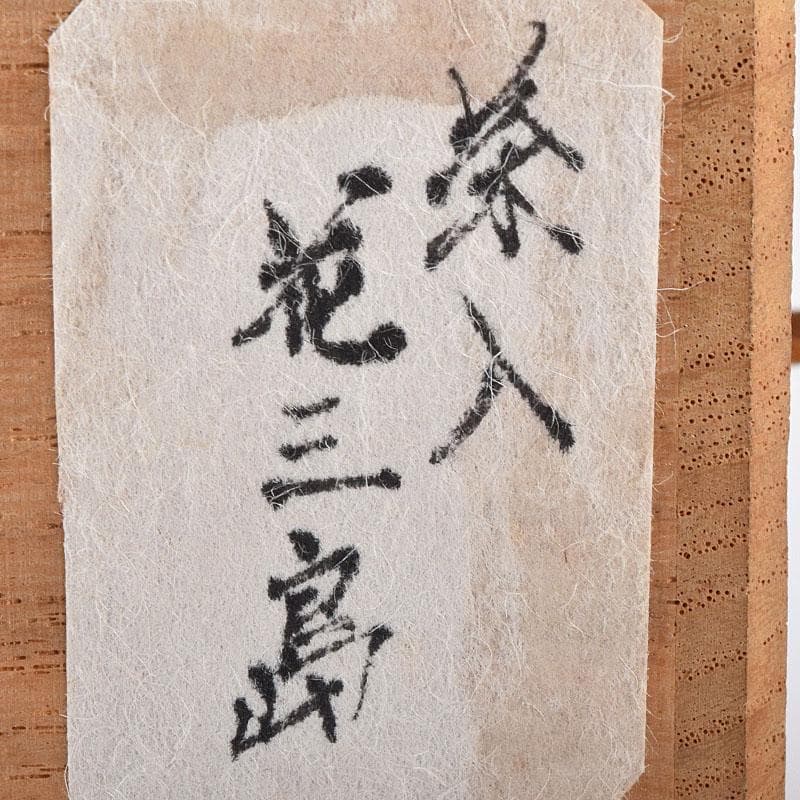 茶入
花三島